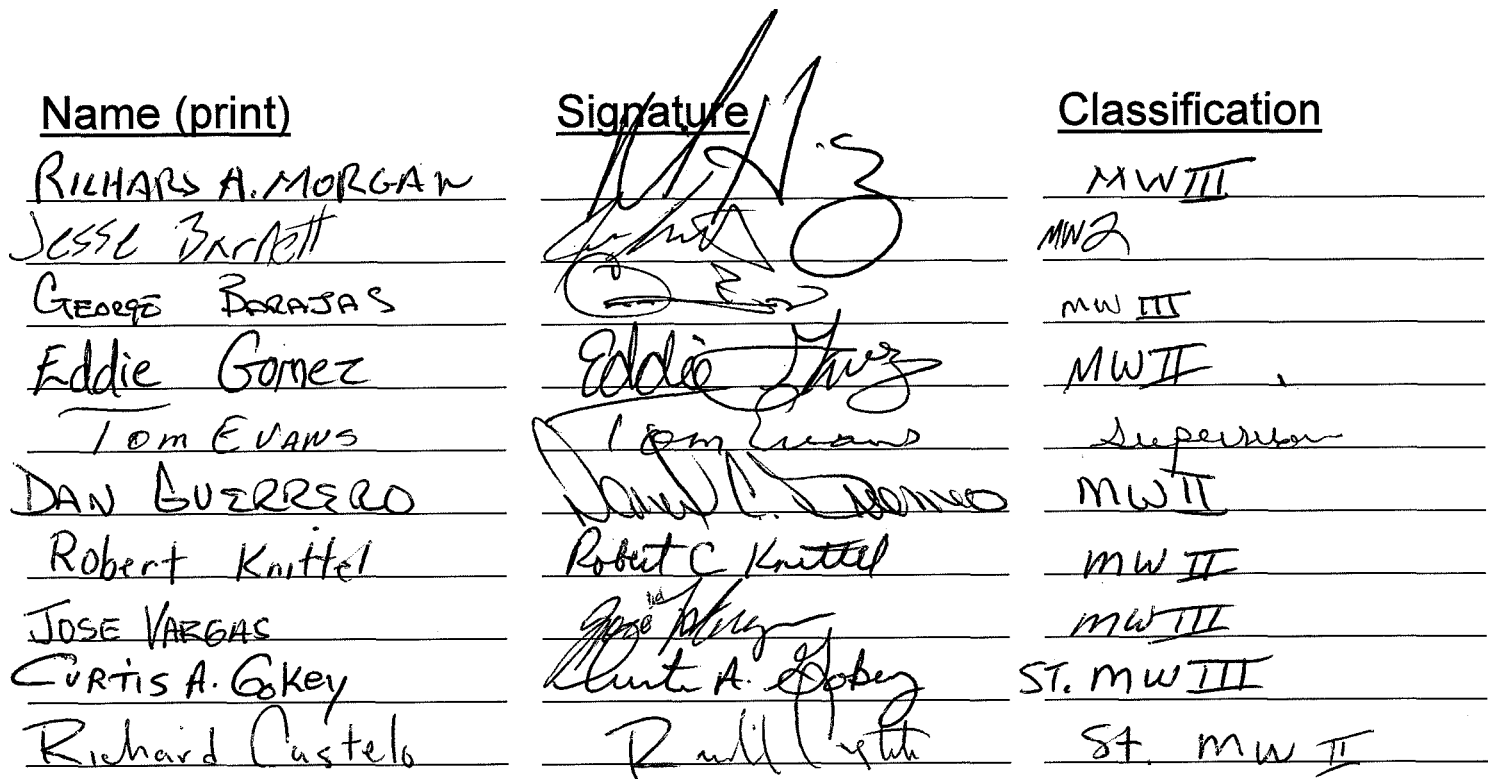 Name (print) Signature Classification
RICHARD A. MORGAN MW III
Jesse Barnett MW2
GEORGE BARAJAS MW III
Eddie Gomez Eddie Gomez MW II
Tom EVANS Tom Evans Supervisor
DAN GUERRERO Daniel C. Guerrero MW II
Robert Knittel Robert C Knittel MW II
JOSE VARGAS Jose Vargas MW III
CURTIS A. Gokey Curtis A. Gokey ST. MW III
Richard Castelo St. MW II